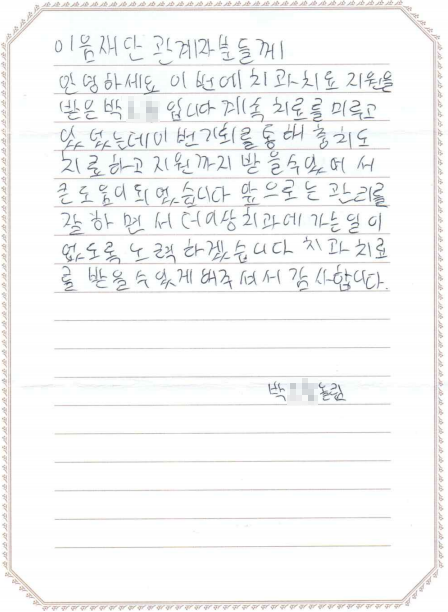 이음재단 관계자분들께
안녕하세요 이번에 치과치료 지원을
받은 박 입니다 계속 치료를 미루고
있었는데 이번기회를 통해 충치도
치료하고 지원까지 받을수있어서
큰도움이되었습니다 앞으로는 관리를
잘하면서 더이상치과에 가는일이
없도록 노력하겠습니다 치과치료
를 받을수있게 해주셔서 감사합니다.
박 올림